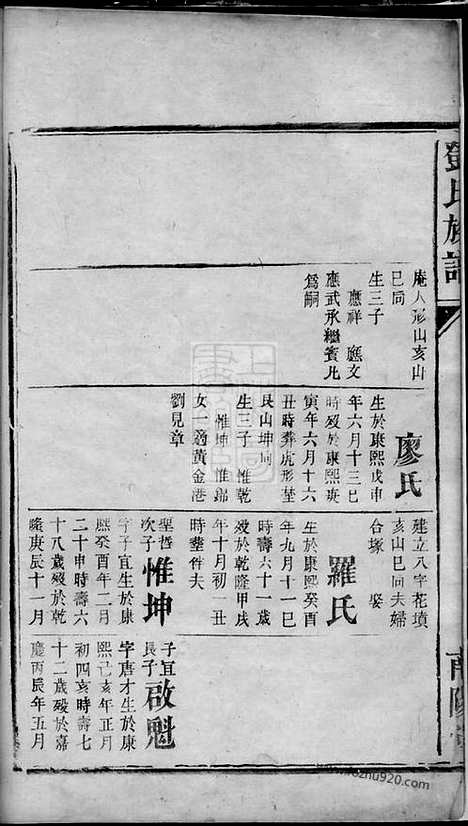 鄧氏族譜
庵人形山亥山
巳向
生三子
應祥 應文
應武承繼賓凡
爲嗣
廖氏
生於康熙戊申
年六月十三巳
時歿於康熙庚
寅年六月十六
丑時葬虎形堂
艮山坤向
生三子 惟乾
惟坤 惟歸
女一適黃金港
劉見章
建立八字花墳
亥山巳向夫婦
合塚 娶
羅氏
生於康熙癸酉
年九月十一巳
時壽六十一歲
歿於乾隆甲戌
年十月初一丑
時塟仵夫
聖哲
次子惟坤
字子宜生於康
熙癸酉年二月
二十申時壽六
十八歲歿於乾
隆庚辰十一月
子宜
長子啟魁
字唐才生於康
熙己亥年正月
初四亥時壽七
十二歲歿於嘉
慶丙辰年五月
南陽